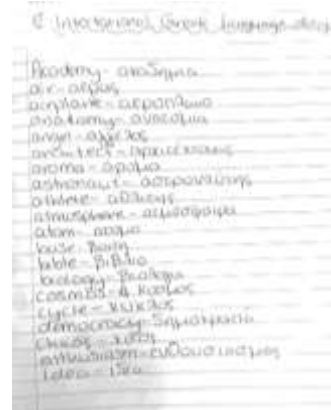 International Greek Language
Academy - ακαδημία
air - αέρας
airplane - αεροπλάνο
anatomy - ανατομία
angel - άγγελος
architect - αρχιτέκτονας
aroma - άρωμα
astronaut - αστροναύτης
athlete - αθλητής
atmosphere - ατμόσφαιρα
atom - άτομο
base - βάση
bible - βιβλίο
biology - βιολογία
cosmos - κόσμος
cycle - κύκλος
democracy - δημοκρατία
chaos - χάος
enthusiasm - ενθουσιασμός
idea - ιδέα